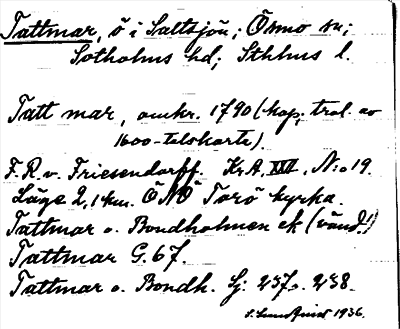 Tattmar, ö i Saltsjön; Ösmo sn;
Sotholms hd; Sthlms l.
Tatt mar, omkr. 1790 (kop. trol. av
1600-talskarta)
F. R. v. Friesendorff. Kr.A. XVI, N:o 19.
Läge 2,1 km. ÖNÖ Torö kyrka.
Tattmar o. Bondholmen ek (vänd!)
Tattmar G. 67.
Tattmar o. Bondh. Gj: 237 o. 238.
S. Lundqvist 1936.